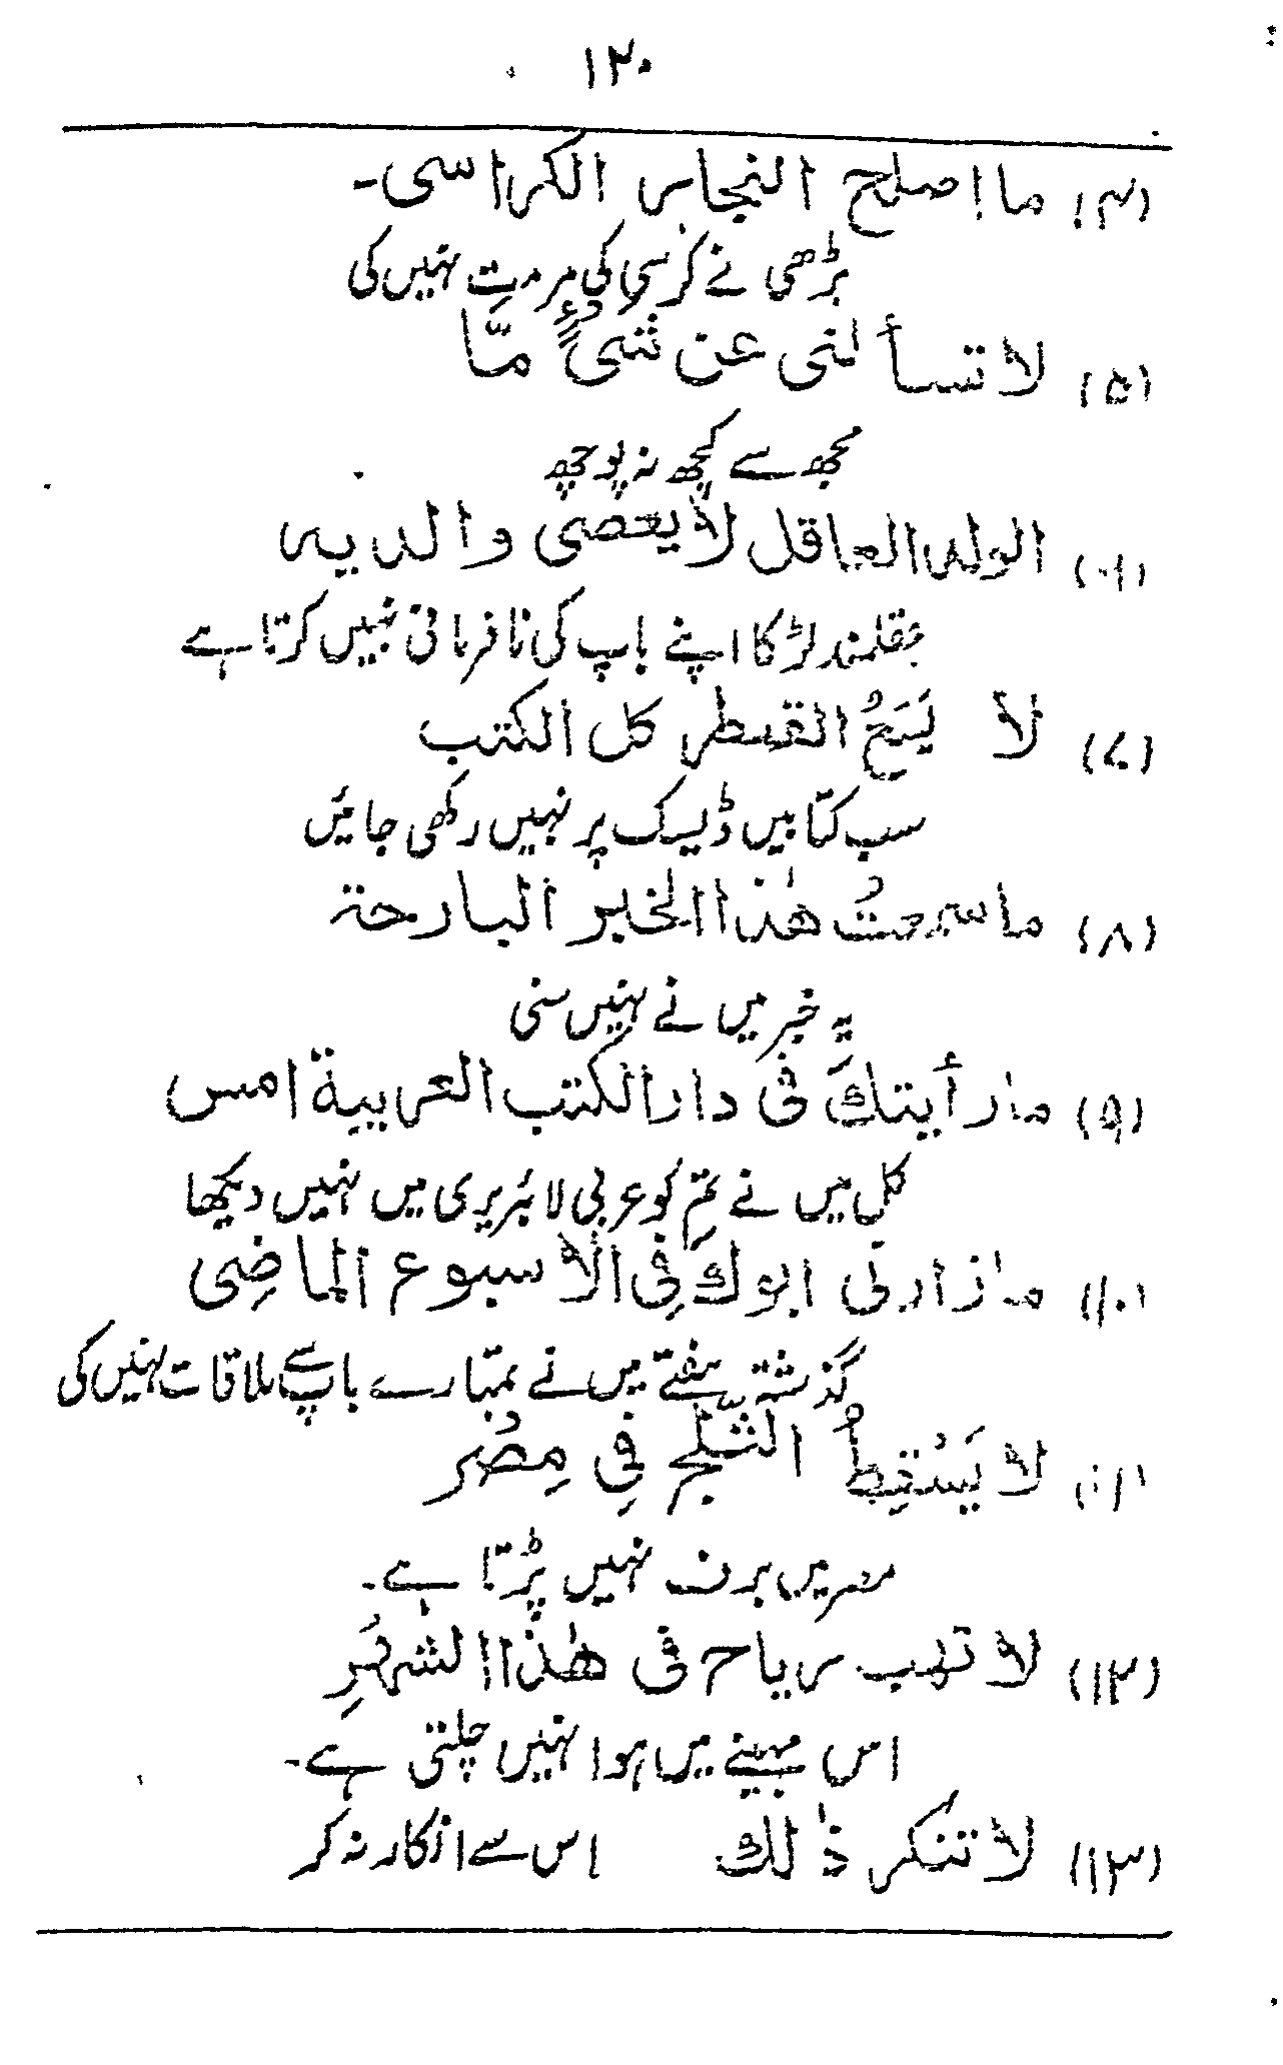 ۱۲۰
(۴) ما اصلح النجار الكراسى۔
بڑھی نے کرسی کی مرمت نہیں کی
(۵) لا تسألنى عن شىءٍ مّا
مجھ سے کچھ نہ پوچھ
(۶) الولد العاقل لا يعصى والديه
عقلمند لڑکا اپنے باپ کی نافرمانی نہیں کرتا ہے
(۷) لا يَسَعُ القمطر كل الكتب
سب کتابیں ڈیسک پر نہیں رکھی جائیں
(۸) ما سمعتُ هٰذا الخبر البارحة
یہ خبر میں نے نہیں سنی
(۹) ما رأيتكَ فى دار الكتب العربية امس
کل میں نے تم کو عربی لائبریری میں نہیں دیکھا
(۱۰) ما زارنى ابوكَ فِى الاسبوع الماضِى
گذشتہ ہفتے میں نے تمہارے باپ سے ملاقات نہیں کی
(۱۱) لا يَسْقِطُ الثّلج فِى مِصْر
مصر میں برف نہیں پڑتا ہے۔
(۱۲) لا تهب رياح فى هٰذا الشهْرِ
اس مہینے میں ہوا نہیں چلتی ہے۔
(۱۳) لا تنكر ذٰلك اس سے انکار نہ کر